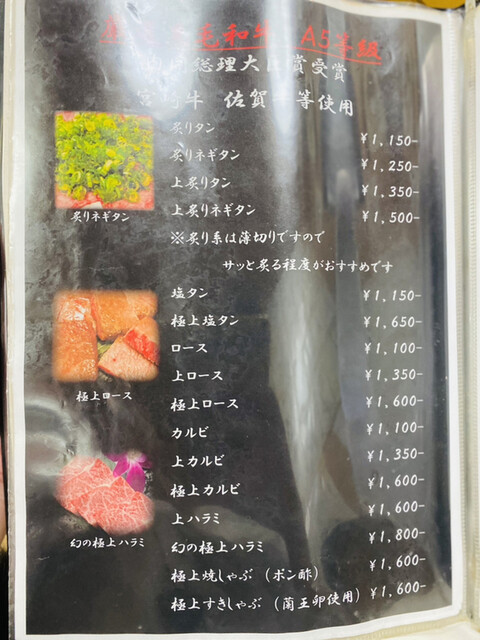 毛和牛 A5等級
総理大臣賞受賞
宮崎牛 佐賀牛等使用
炙りタン ¥1,150-
炙りネギタン ¥1,250-
上炙りタン ¥1,350-
上炙りネギタン ¥1,500-
※炙り系は薄切りですので
サッと炙る程度がおすすめです
炙りネギタン
塩タン ¥1,150-
極上塩タン ¥1,650-
ロース ¥1,100-
上ロース ¥1,350-
極上ロース ¥1,600-
極上ロース
カルビ ¥1,100-
上カルビ ¥1,350-
極上カルビ ¥1,600-
上ハラミ ¥1,600-
幻の極上ハラミ ¥1,800-
幻の極上ハラミ
極上焼しゃぶ（ポン酢） ¥1,600-
極上すきしゃぶ（蘭王卵使用） ¥1,600-